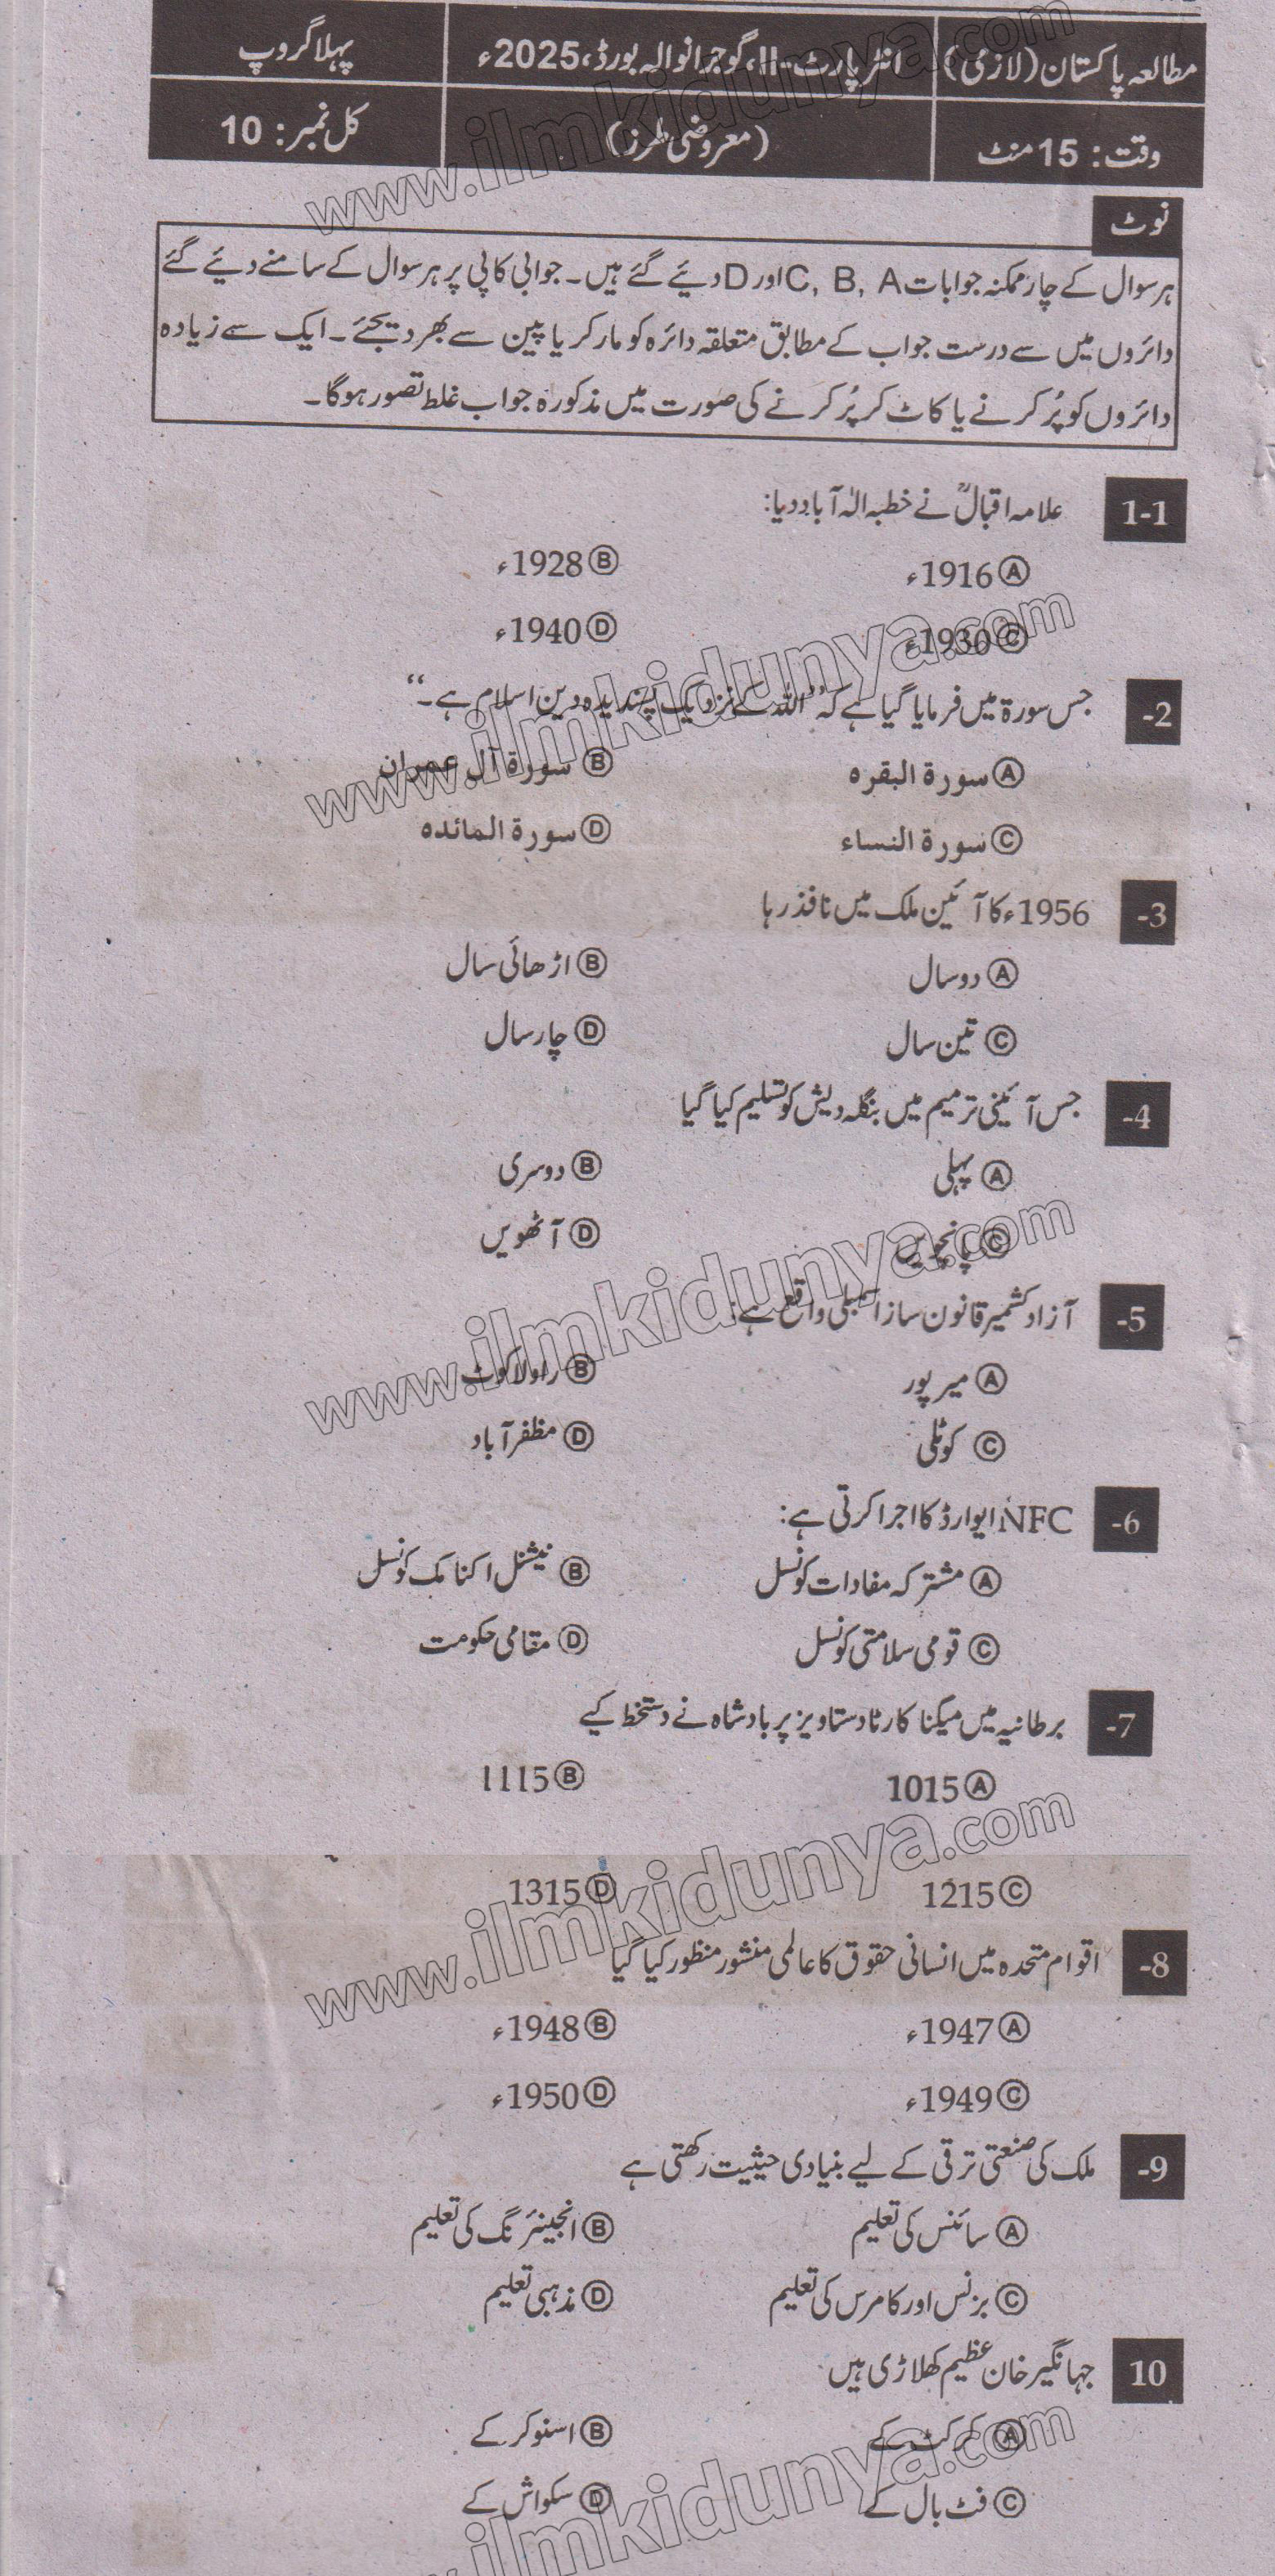 مطالعہ پاکستان (لازمی) انٹر پارٹ-II، گوجرانوالہ بورڈ، 2025ء پہلا گروپ
وقت: 15 منٹ (معروضی طرز) کل نمبر: 10
نوٹ
ہر سوال کے چار ممکنہ جوابات C, B, A اور D دیئے گئے ہیں۔ جوابی کاپی پر ہر سوال کے سامنے دیئے گئے
دائروں میں سے درست جواب کے مطابق متعلقہ دائرہ کو مارکر یا پین سے بھر دیجئے۔ ایک سے زیادہ
دائروں کو پُر کرنے یا کاٹ کر پُر کرنے کی صورت میں مذکورہ جواب غلط تصور ہوگا۔
1-1 علامہ اقبالؒ نے خطبہ الٰہ آباد دیا:
Ⓐ 1916ء Ⓑ 1928ء
Ⓒ 1930ء Ⓓ 1940ء
2- جس سورۃ میں فرمایا گیا ہے کہ ’’اللہ کے نزدیک پسندیدہ دین اسلام ہے۔‘‘
Ⓐ سورۃ البقرہ Ⓑ سورۃ آل عمران
Ⓒ سورۃ النساء Ⓓ سورۃ المائدہ
3- 1956ء کا آئین ملک میں نافذ رہا
Ⓐ دو سال Ⓑ اڑھائی سال
Ⓒ تین سال Ⓓ چار سال
4- جس آئینی ترمیم میں بنگلہ دیش کو تسلیم کیا گیا
Ⓐ پہلی Ⓑ دوسری
Ⓒ پانچویں Ⓓ آٹھویں
5- آزاد کشمیر قانون ساز اسمبلی واقع ہے:
Ⓐ میر پور Ⓑ راولاکوٹ
Ⓒ کوٹلی Ⓓ مظفرآباد
6- NFC ایوارڈ کا اجرا کرتی ہے:
Ⓐ مشترکہ مفادات کونسل Ⓑ نیشنل اکنامک کونسل
Ⓒ قومی سلامتی کونسل Ⓓ مقامی حکومت
7- برطانیہ میں میگنا کارٹا دستاویز پر بادشاہ نے دستخط کیے
Ⓐ 1015 Ⓑ 1115
Ⓒ 1215 Ⓓ 1315
8- اقوام متحدہ میں انسانی حقوق کا عالمی منشور منظور کیا گیا
Ⓐ 1947ء Ⓑ 1948ء
Ⓒ 1949ء Ⓓ 1950ء
9- ملک کی صنعتی ترقی کے لیے بنیادی حیثیت رکھتی ہے
Ⓐ سائنس کی تعلیم Ⓑ انجینئرنگ کی تعلیم
Ⓒ بزنس اور کامرس کی تعلیم Ⓓ مذہبی تعلیم
10 جہانگیر خان عظیم کھلاڑی ہیں
Ⓐ کرکٹ کے Ⓑ اسنوکر کے
Ⓒ فٹ بال کے Ⓓ سکواش کے
www.ilmkidunya.com
www.ilmkidunya.com
www.ilmkidunya.com
www.ilmkidunya.com
ilmkidunya.com